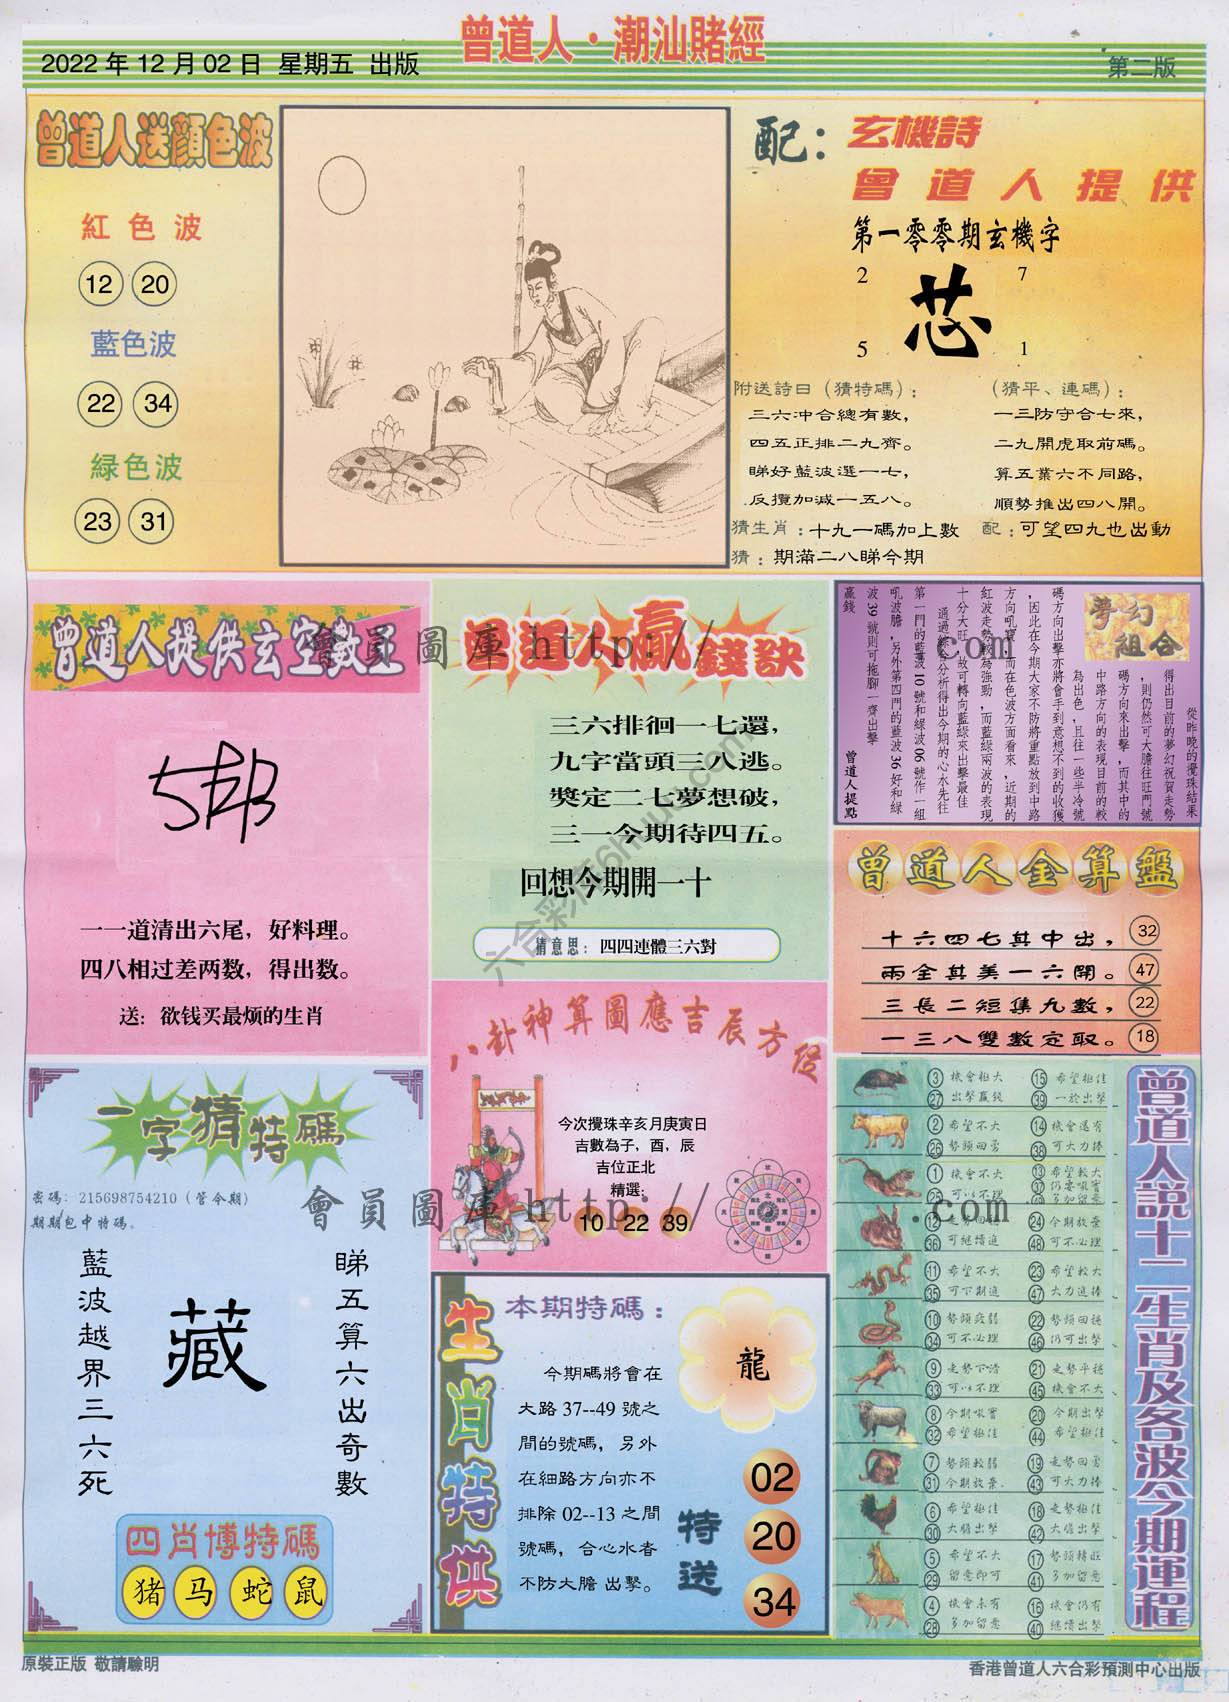 曾道人·潮汕賭經
2022年12月02日 星期五 出版
第二版
曾道人送顏色波
紅色波
12 20
藍色波
22 34
綠色波
23 31
配：玄機詩
曾道人提供
第一零零期玄機字
2 7
芯
5 1
附送詩曰（猜特碼）：
三六冲合總有數，
四五正排二九齊。
睇好藍波選一七，
反攬加減一五八。
（猜平、連碼）：
一三防守合七來，
二九開虎取前碼。
算五業六不同路，
順勢推出四八開。
猜生肖：十九一碼加上數
配：可望四九也出動
猜：期滿二八睇今期
曾道人提供玄空數王
一一道清出六尾，好料理。
四八相过差两数，得出数。
送：欲钱买最烦的生肖
曾道人贏錢訣
三六排徊一七還，
九字當頭三八逃。
獎定二七夢想破，
三一今期待四五。
回想今期開一十
猜意思：四四連體三六對
夢幻
組合
從昨晚的攪珠結果
得出目前的夢幻祝賀走勢
，則仍然可大膽往旺門號
碼方向來出擊，而其中的
中路方向的表現目前的較
為出色，且往一些半冷號
碼方向出擊亦將會手到意想不到的收獲
，因此在今期大家不防將重點放到中路
方向吼寶，而在色波方面看來，近期的
紅波走勢較為強勁，而藍綠兩波的表現
十分大旺，故可轉向藍綠來出擊最佳
通過綜合分析得出今期的心水先往
第一門的藍波10號和綠波06號作一組
吼波膽，另外第四門的藍波36好和綠
波39號則可拖腳一齊出擊
贏錢
曾道人提點
曾道人金算盤
十六四七其中出， 32
兩全其美一六開。 47
三長二短集九數， 22
一三八雙數定取。 18
八卦神算圖應吉辰方位
今次攪珠辛亥月庚寅日
吉數為子，酉，辰
吉位正北
精選：
10 22 39
一字猜特碼
密碼：215698754210（管今期）
期期包中特碼。
睇五算六出奇數
藏
藍波越界三六死
四肖博特碼
猪 马 蛇 鼠
生肖特供
本期特碼：
今期碼將會在
大路37--49號之
間的號碼，另外
在細路方向亦不
排除02--13之間
號碼，合心水者
不防大膽 出擊。
龍
特送
02
20
34
曾道人說十二生肖及各波今期運程
3 機會極大 15 希望極佳
27 出擊贏錢 39 一於出擊
2 希望不大 14 機會還有
26 勢頭回勇 38 可大力捧
1 機會不大 13 希望較大
25 可以不理 37 仍要吸實
49 多加留意
12 走勢回穩 24 今期放棄
36 可繼續追 48 可不必理
11 希望不大 23 希望較大
35 可下期進 47 大力進捧
10 勢頭疲弱 22 勢頭回穩
34 可不必理 46 仍可出擊
9 走勢下滑 21 走勢平穩
33 可以不理 45 機會不大
8 今期吸實 20 今期出擊
32 希望極佳 44 希望極佳
7 勢頭較弱 19 走勢回勇
31 今期放棄 43 可大力捧
6 希望極佳 18 走勢極佳
30 大膽出擊 42 大膽出擊
5 希望不大 17 勢頭轉旺
29 留意即可 41 多加留意
4 機會未有 16 機會仍有
28 多加留意 40 繼續出擊
會員圖庫 http:// .com
會員圖庫 http:// .com
原裝正版 敬請驗明
香港曾道人六合彩預測中心出版